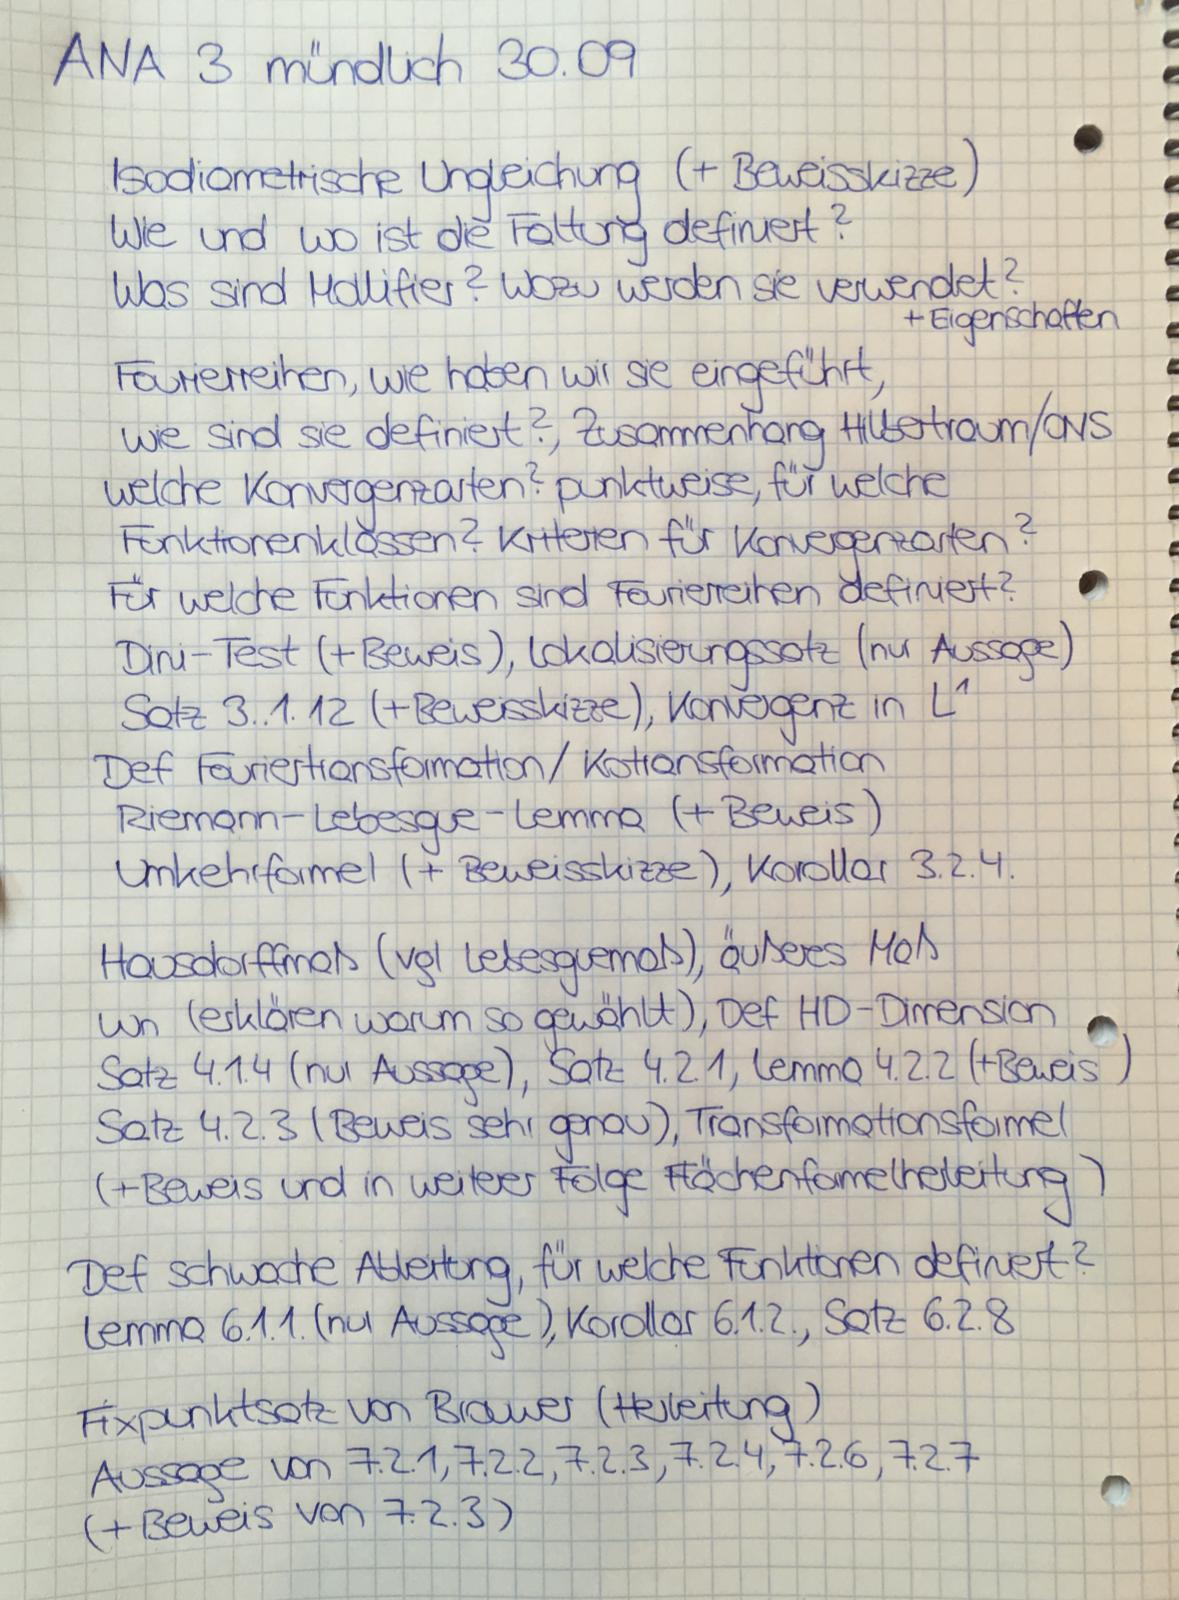 ANA 3 mündlich 30.09
Isodiametrische Ungleichung (+ Beweisskizze)
Wie und wo ist die Faltung definiert?
Was sind Mollifier? Wozu werden sie verwendet?
+ Eigenschaften
Fourierreihen, wie haben wir sie eingeführt,
wie sind sie definiert?, Zusammenhang Hilbertraum/ONS
welche Konvergenzarten? punktweise, für welche
Funktionenklassen? Kriterien für Konvergenzarten?
Für welche Funktionen sind Fourierreihen definiert?
Dini-Test (+Beweis), Lokalisierungssatz (nur Aussage)
Satz 3.1.12 (+Beweisskizze), Konvergenz in L¹
Def Fouriertransformation/ Kotransformation
Riemann-Lebesgue-Lemma (+ Beweis)
Umkehrformel (+ Beweisskizze), Korollar 3.2.4.
Hausdorffmaß (vgl Lebesguemaß), äußeres Maß
ωn (erklären warum so gewählt), Def HD-Dimension
Satz 4.1.4 (nur Aussage), Satz 4.2.1, Lemma 4.2.2 (+Beweis)
Satz 4.2.3 (Beweis sehr genau), Transformationsformel
(+Beweis und in weiterer Folge Flächenformelherleitung)
Def schwache Ableitung, für welche Funktionen definiert?
Lemma 6.1.1. (nur Aussage), Korollar 6.1.2., Satz 6.2.8
Fixpunktsatz von Brouwer (Herleitung)
Aussage von 7.2.1, 7.2.2, 7.2.3, 7.2.4, 7.2.6, 7.2.7
(+Beweis von 7.2.3)